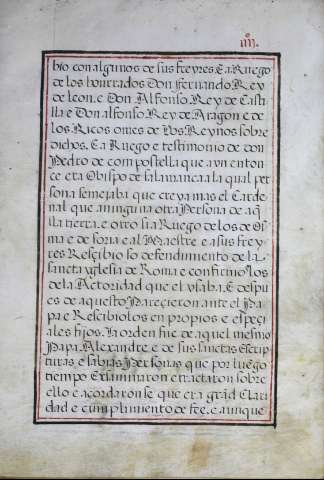 iiij.
bio con algunos de sus freyres. E a Ruego
de los hourrados Don fernando Rey
de leon. e Don Alfonso Rey de Casti
lla e Don alfonso Rey de Aragon e de
los Ricos omes de Los Reynos sobre
dichos. E a Ruego e testimonio de don
Pedro de compostella que a un enton
ce era Obispo de salamanca a la qual per
sona semejaba que creya mas el Carde
nal que a ninguna otra Persona de aq̃
lla tierra. e otro si a Ruego de los de Os
ma e de soria e al Maestre e a sus frey
res Resçibio so defendimiento de la
sancta yglesia de Roma e confirmolos
de la Actoridad que el vsaba. E despu
es de aquesto Pareçieron ante el Pa
pa e Resçibiolos en propios e espeçi
ales fijos. la orden fue de aquel mesmo
Papa Alexandre e de sus sanctas escrip
turas. e sabias Personas que por luego
tiempo Examinaron e tractaron sobre
ello e acordaron se que era grãd Clari
dad e cumplimiento de fee. e aunque